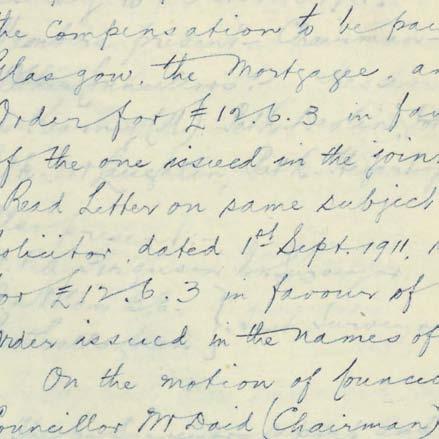 the compensation to be pai
Glasgow, the Mortgagee, an
Order for £12.6.3 in fav
of the one issued in the join
Read Letter on same subject
Solicitor, dated 1st Sept. 1911,
for £12.6.3 in favour of
Order issued in the names of
On the motion of Counci
Councillor McDaid (Chairman)